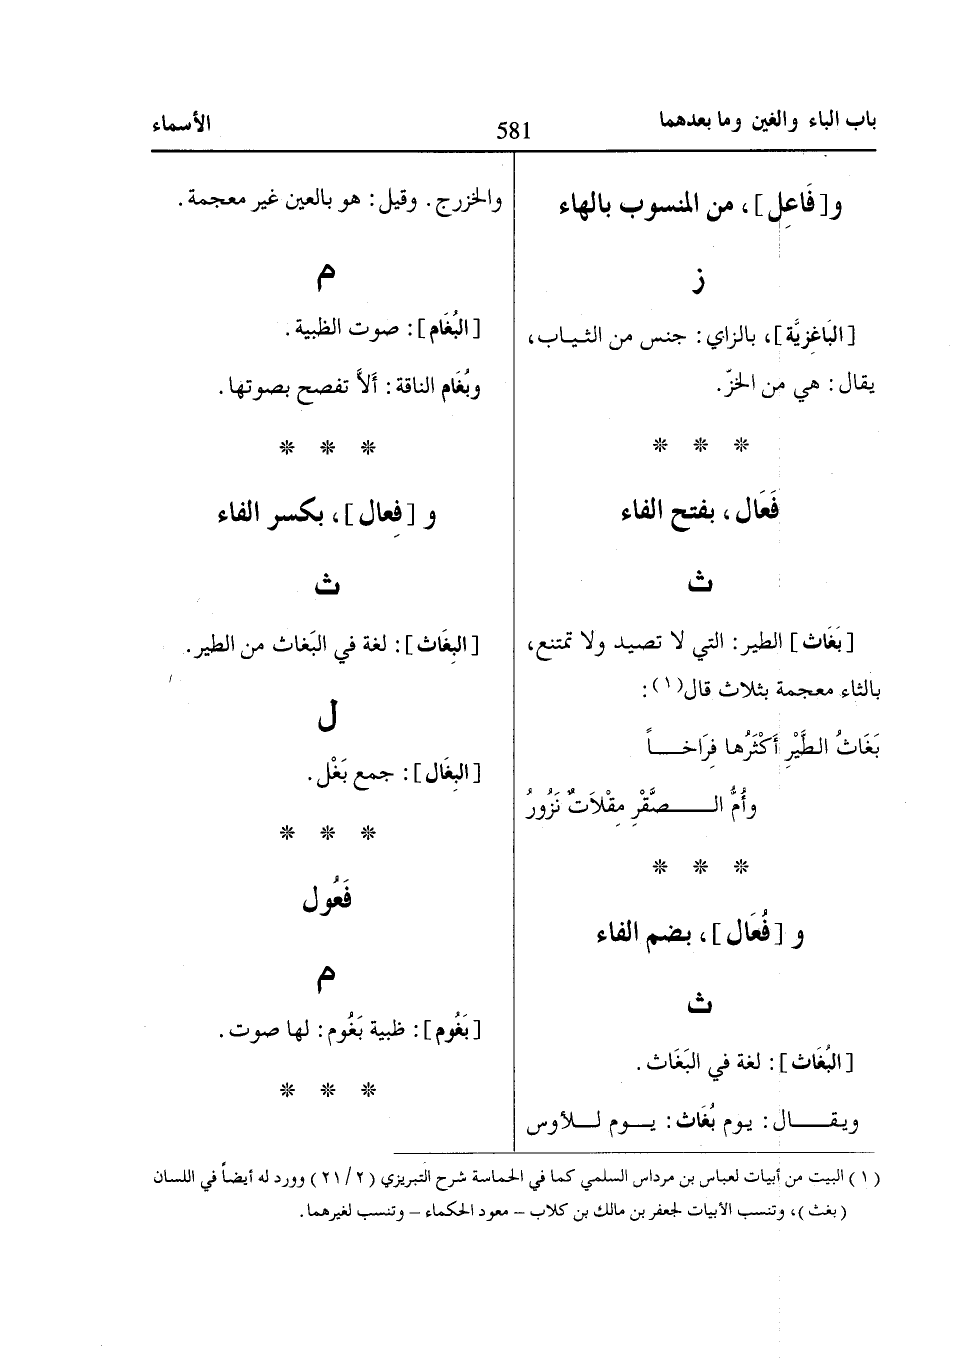 باب الباء والغين وما بعدهما
581
الأسماء
و[فَاعِل]، من المنسوب بالهاء
ز
[البَاغزيَّة]، بالزاي: جنس من الثياب،
يقال: هي من الخزّ.
* * *
فَعَال، بفتح الفاء
ث
[بَغَاث] الطير: التي لا تصيد ولا تمتنع،
بالثاء معجمة بثلاث قال(١):
بَغَاثُ الطَّيْرِ أَكْثَرُها فِرَاخاً
وأُمُّ الصَّقْرِ مِقْلاَتٌ نَزُورُ
* * *
و [فُعَال]، بضم الفاء
ث
[البُغَاث]: لغة في البَغَاث.
ويقال: يوم بُغَاث: يوم للأوس
والخزرج. وقيل: هو بالعين غير معجمة.
م
[البُغَام]: صوت الظبية.
وبُغَام الناقة: ألاَّ تفصح بصوتها.
* * *
و [فِعال]، بكسر الفاء
ث
[البِغَاث]: لغة في البَغاث من الطير.
ل
[البِغَال]: جمع بَغْل.
* * *
فَعُول
م
[بَغُوم]: ظبية بَغُوم: لها صوت.
* * *
(١) البيت من أبيات لعباس بن مرداس السلمي كما في الحماسة شرح التبريزي (٢/٢١) وورد له أيضاً في اللسان
(بغث)، وتنسب الأبيات لجعفر بن مالك بن كلاب – معود الحكماء – وتنسب لغيرهما.